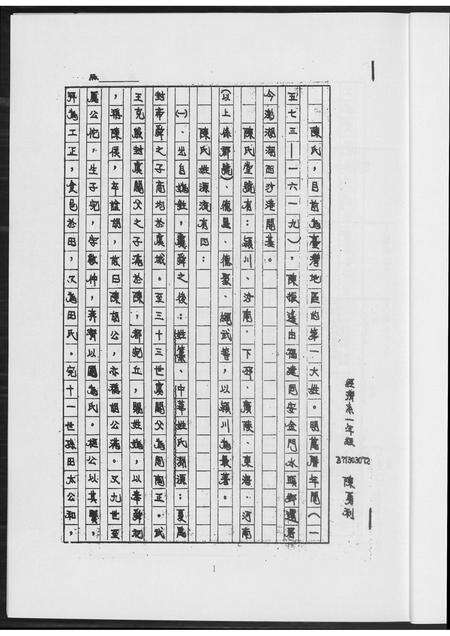 經濟系一年級
陳勇利
陳氏,目前為臺灣地區的第一大姓。明萬曆年間(一
五七三——一六一九),陳振遙由福建同安金門水頭鄉遷居
今澎湖湖西沙港開基。
陳氏堂號有:潁川、汝南、下邳、廣陵、東海、河南
(以上係郡號)、德星、德聚、繩武等,以潁川為最著。
陳氏姓源流有四:
㈠、出自媯姓,虞舜之後:姓纂、中華姓氏源:夏禹
封帝舜之子商均於虞城。至三十三世虞閼父為周陶正。武
王克殷封虞閼父之子滿於陳,都宛丘,賜姓媯,以奉舜祀
,稱陳侯,卒諡胡,故曰陳胡公,亦稱胡公滿。又九世至
厲公佗,生子完,字敬仲,奔齊以國為氏。桓公以其賢,
升為工正,食邑於田,又為田氏。完十一世孫田太公和,
1